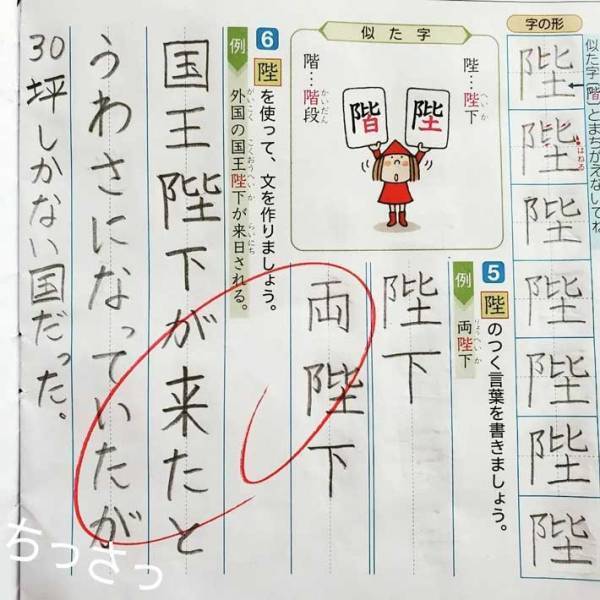 字の形
似た字「階」とまちがえないでね
はねる
陛
陛
陛
陛
陛
陛
陛
似た字
陛…陛下
へいか
階…階段
かいだん
陛
階
5
陛のつく言葉を書きましょう。
例
両陛下
りょうへいか
陛下
両陛下
6
陛を使って、文を作りましょう。
例
外国の国王陛下が来日される。
がいこく こくおうへいか らいにち
国王陛下が来たと
うわさになっていたが
30坪しかない国だった。
ちっさっ